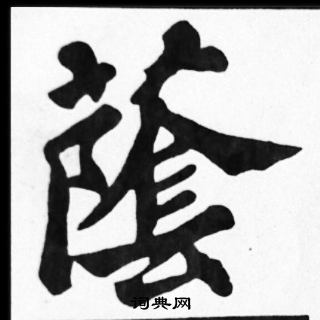 蔭
词典网